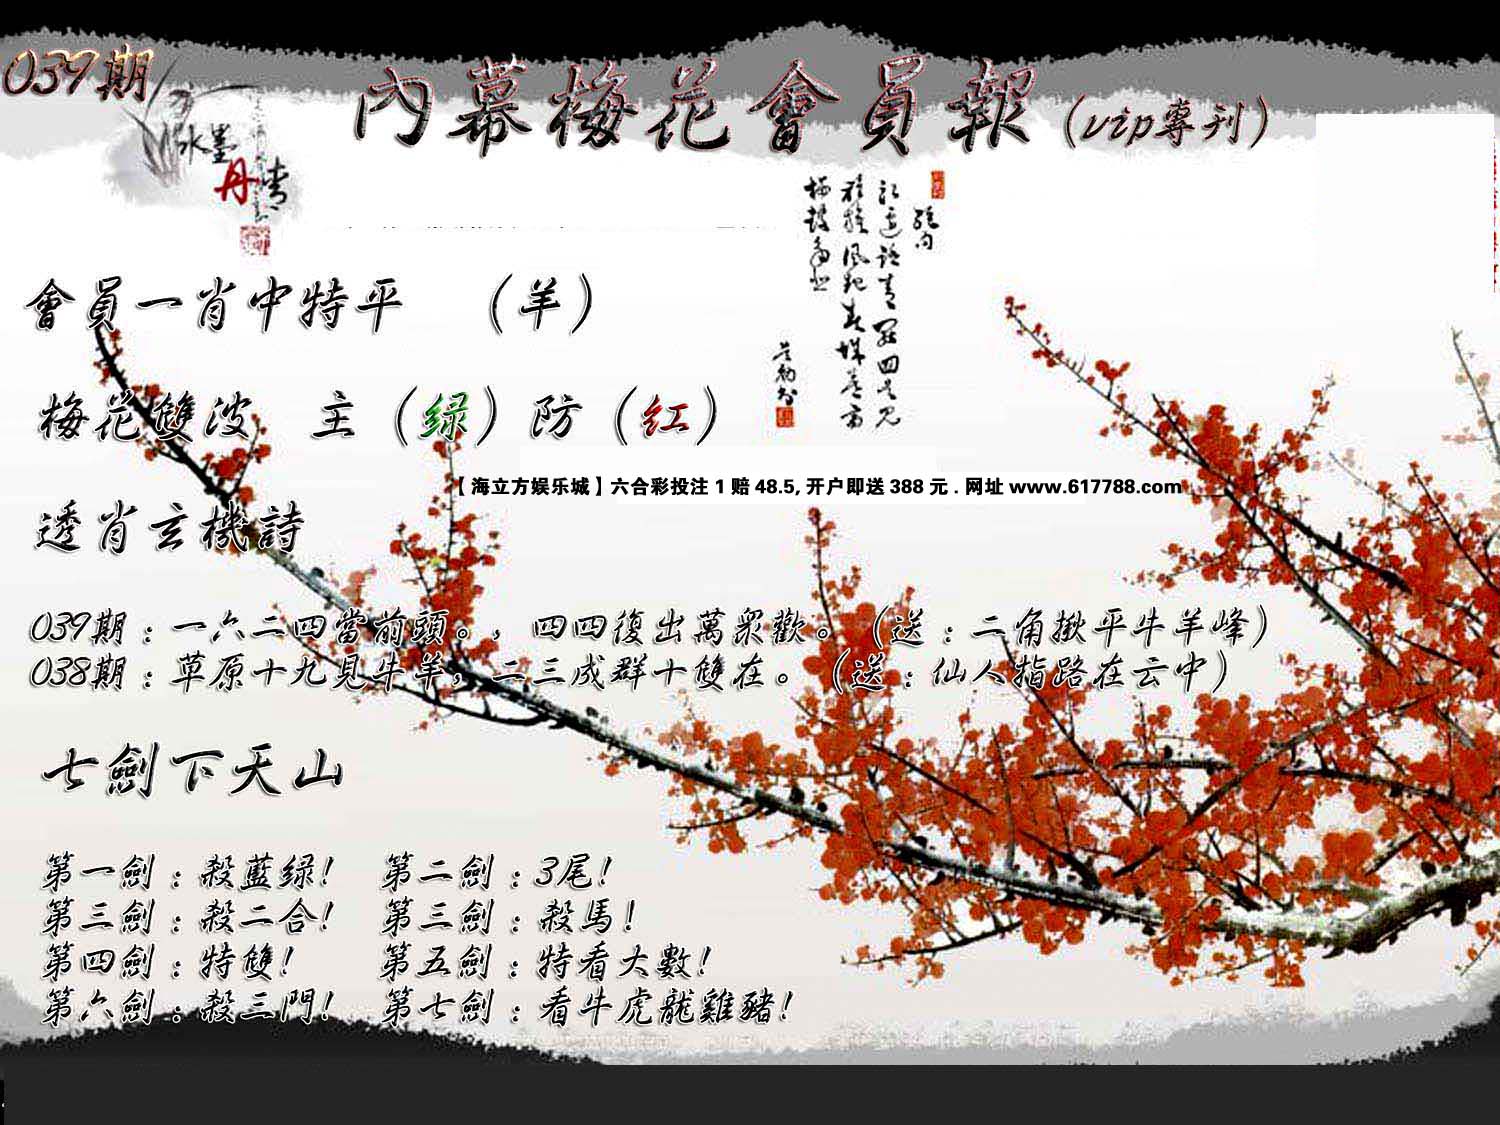 039期
內幕梅花會員報(vip專刊)
水墨
丹青
會員一肖中特平 (羊)
梅花雙波 主(绿)防(红)
【海立方娱乐城】六合彩投注1赔48.5,开户即送388元.网址www.617788.com
透肖玄機詩
039期：一六二四當前頭。，四四復出萬衆歡。(送：二角揪平牛羊峰)
038期：草原十九見牛羊，二三成群十雙在。(送：仙人指路在云中)
七劍下天山
第一劍：殺藍绿! 第二劍：3尾!
第三劍：殺二合! 第三劍：殺馬!
第四劍：特雙! 第五劍：特看大數!
第六劍：殺三門! 第七劍：看牛虎龍雞豬!